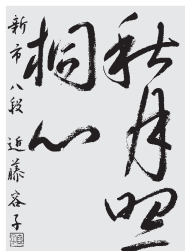 秋月照
桐心
新市 八段 近藤容子